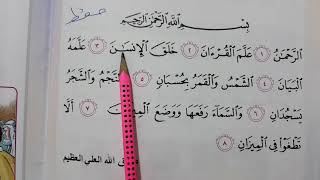 حفظ
بِسْمِ ٱللَّهِ ٱلرَّحْمَٰنِ ٱلرَّحِيمِ
ٱلرَّحْمَٰنُ ١ عَلَّمَ ٱلْقُرْءَانَ ٢ خَلَقَ ٱلْإِنسَٰنَ ٣ عَلَّمَهُ
ٱلْبَيَانَ ٤ ٱلشَّمْسُ وَٱلْقَمَرُ بِحُسْبَانٍ ٥ وَٱلنَّجْمُ وَٱلشَّجَرُ
يَسْجُدَانِ ٦ وَٱلسَّمَآءَ رَفَعَهَا وَوَضَعَ ٱلْمِيزَانَ ٧ أَلَّا
تَطْغَوْا۟ فِى ٱلْمِيزَانِ ٨
الله العلي العظيم